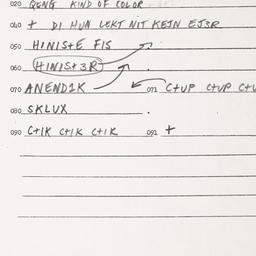 020 QENG KIND OF COLOR
040 + DI HUN LEKT NIT KEJN EJSR
050 HINIS+E FIS
060 HINIS+3R
070 ANENDIK 071 C+UP C+UP C+U
080 SKLUX
090 C+IK C+IK C+IK 091 +